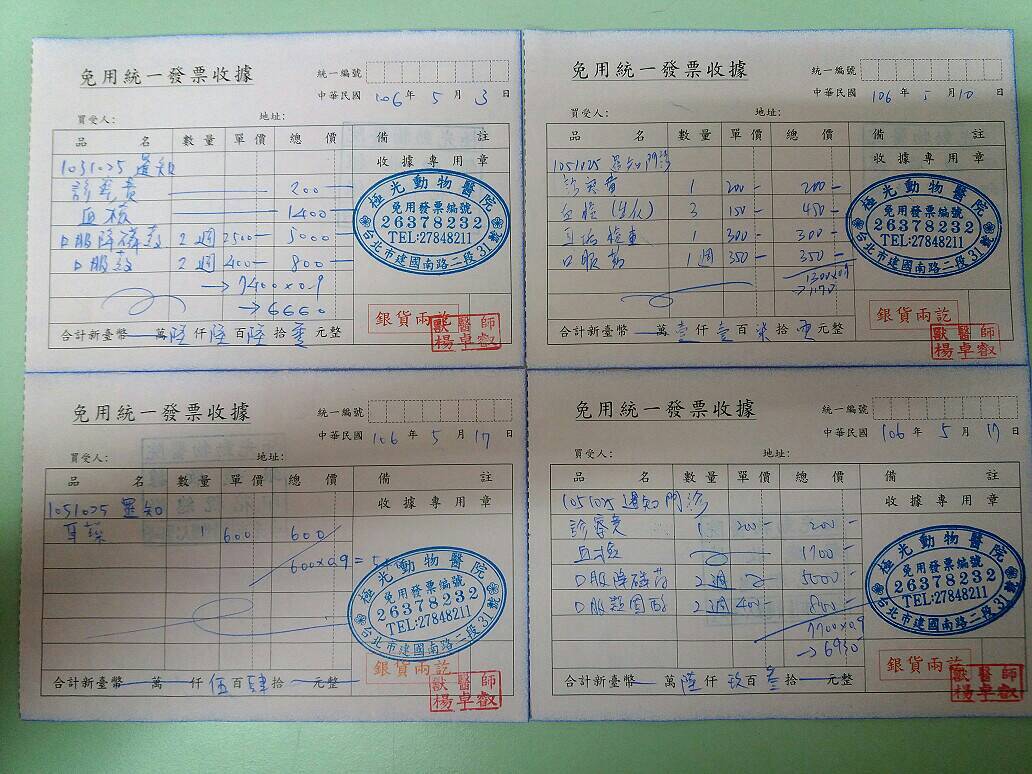 免用統一發票收據
統一編號
中華民國 106 年 5 月 3 日
買受人: 地址:
品名 數量 單價 總價 備註
收據專用章
1051025
診察費 200
血檢 1400
口服降磷藥 2週 2500 5000
口服藥 2週 400 800
→7400×0.9
→6660
極光動物醫院
免用發票編號
26378232
TEL:27848211
台北市建國南路二段31號
銀貨兩訖
合計新臺幣 萬 陸仟 陸百 陸拾 零元整
獸醫師
楊卓叡
免用統一發票收據
統一編號
中華民國 106 年 5 月 10 日
買受人: 地址:
品名 數量 單價 總價 備註
收據專用章
1051025 門診
診察費 1 200 200
血檢(生化) 3 150 450
耳垢檢查 1 300 300
口服藥 1週 350 350
1300×0.9
→1170
極光動物醫院
免用發票編號
26378232
TEL:27848211
台北市建國南路二段31號
銀貨兩訖
合計新臺幣 萬 壹仟 壹百 柒拾 零元整
獸醫師
楊卓叡
免用統一發票收據
統一編號
中華民國 106 年 5 月 17 日
買受人: 地址:
品名 數量 單價 總價 備註
收據專用章
1051025
耳藥 1 600 600
600×0.9=
極光動物醫院
免用發票編號
26378232
TEL:27848211
台北市建國南路二段31號
銀貨兩訖
合計新臺幣 萬 仟 伍百 肆拾 元整
獸醫師
楊卓叡
免用統一發票收據
統一編號
中華民國 106 年 5 月 17 日
買受人: 地址:
品名 數量 單價 總價 備註
收據專用章
1051025 門診
診察費 1 200 200
血檢 1700
口服降磷藥 2週 5000
口服 2週 400 800
7700×0.9
→6930
極光動物醫院
免用發票編號
26378232
TEL:27848211
台北市建國南路二段31號
銀貨兩訖
合計新臺幣 萬 陸仟 玖百 參拾 元整
獸醫師
楊卓叡